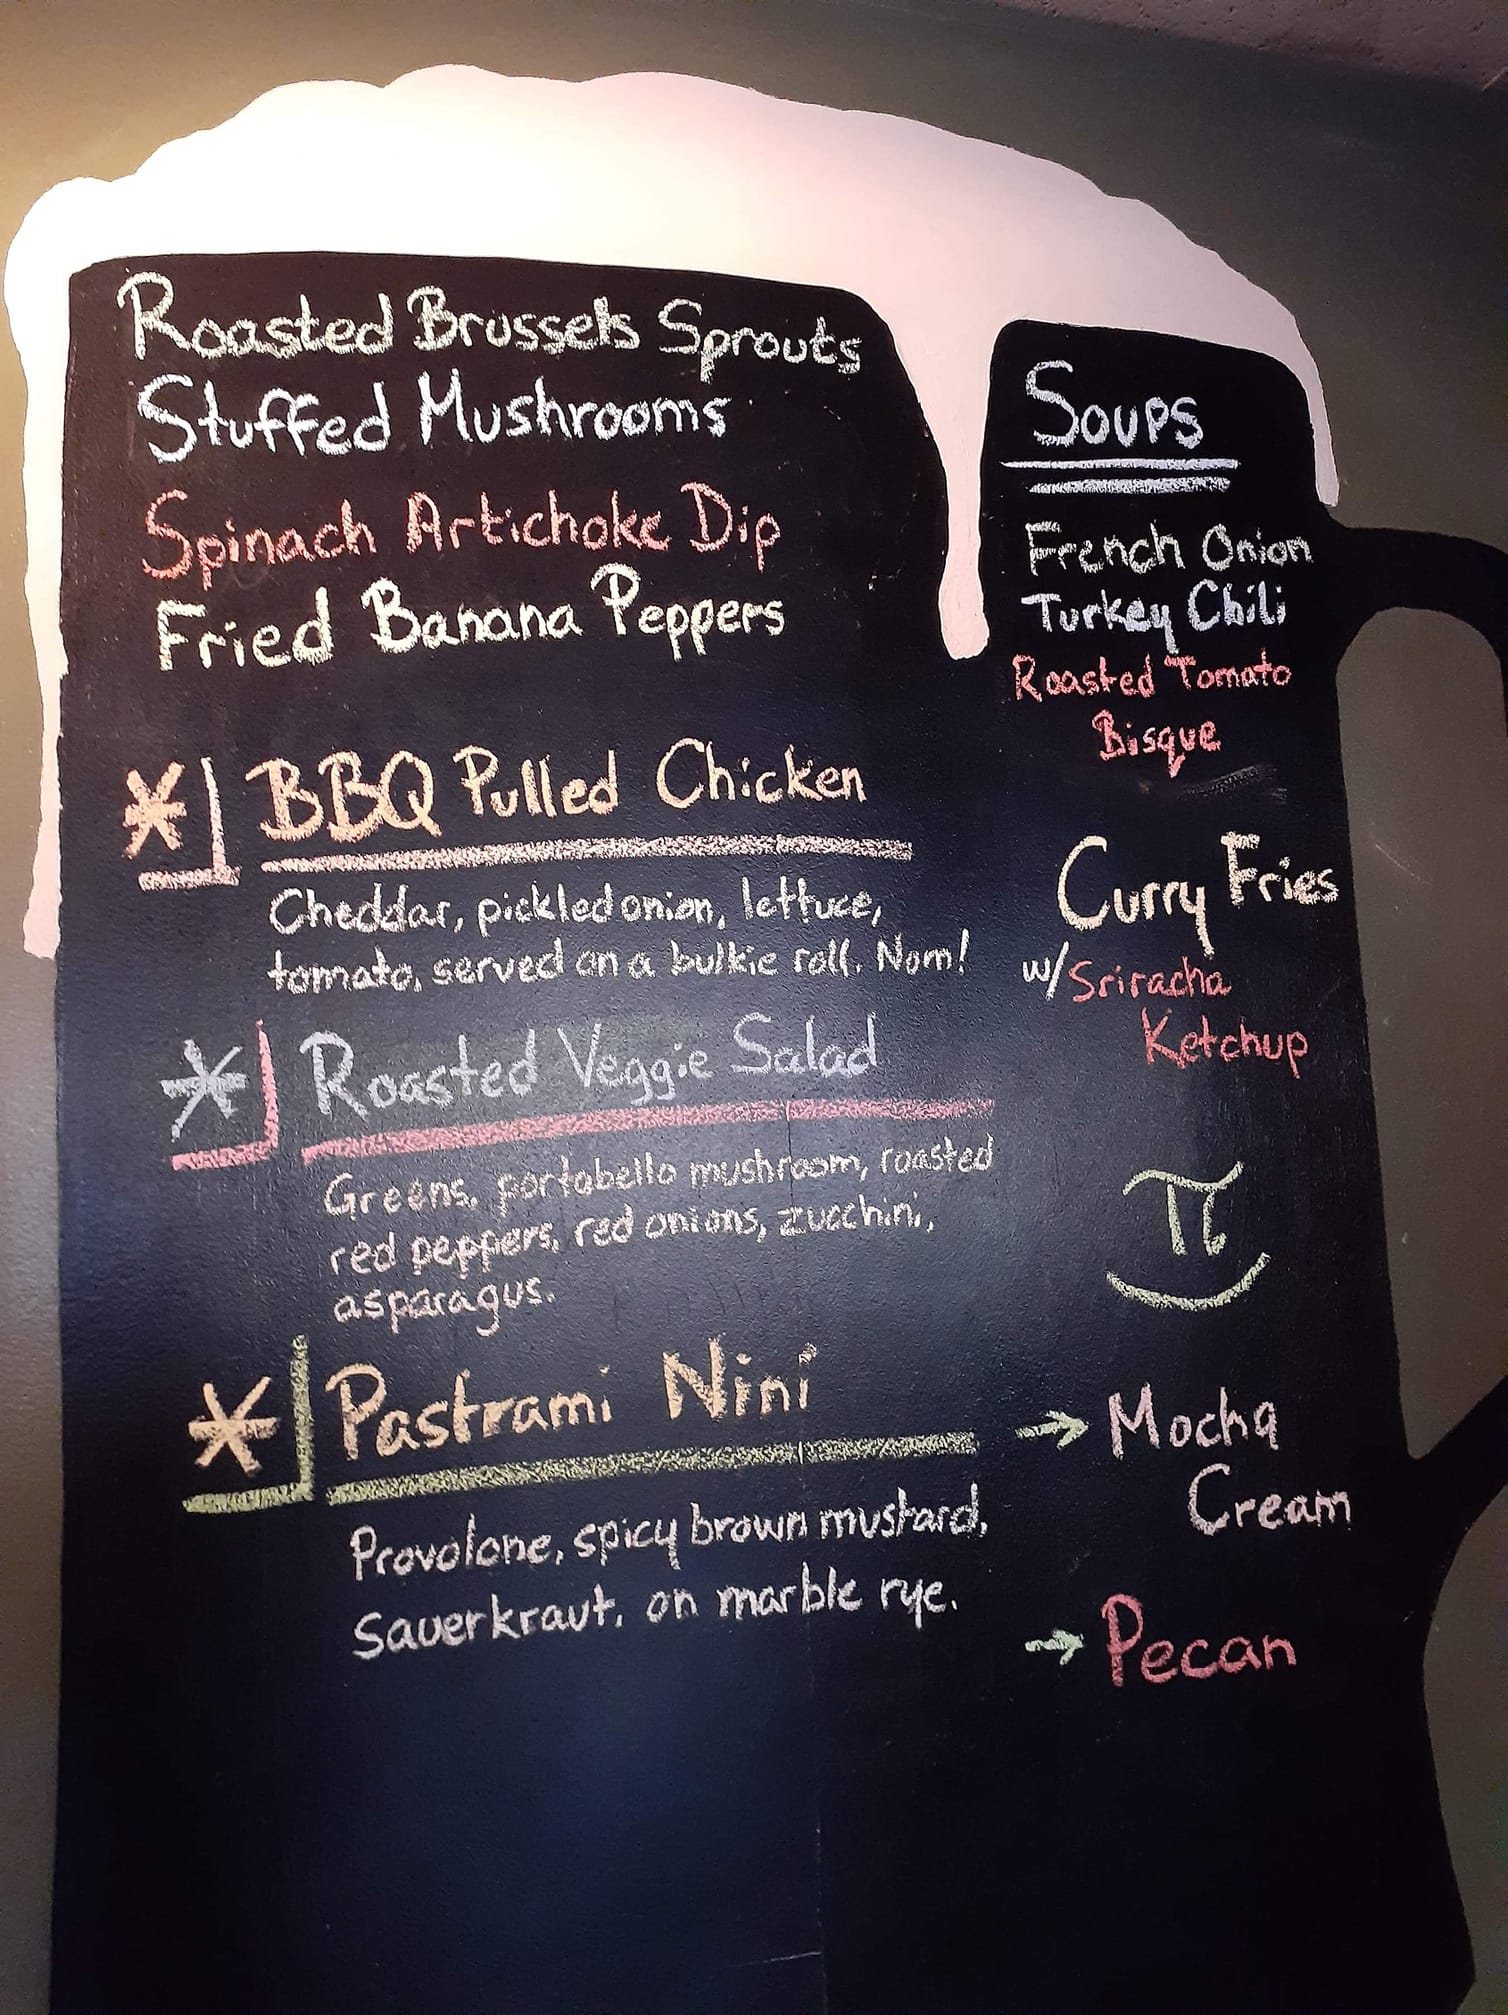 Roasted Brussels Sprouts
Stuffed Mushrooms
Spinach Artichoke Dip
Fried Banana Peppers
* BBQ Pulled Chicken
Cheddar, pickled onion, lettuce,
tomato, served on a bulkie roll. Nom!
* Roasted Veggie Salad
Greens, portabello mushroom, roasted
red peppers, red onions, zucchini,
asparagus.
* Pastrami Nini
Provolone, spicy brown mustard,
Sauerkraut, on marble rye.
Soups
French Onion
Turkey Chili
Roasted Tomato
Bisque
Curry Fries
w/ Sriracha
Ketchup
π
→ Mocha
Cream
→ Pecan